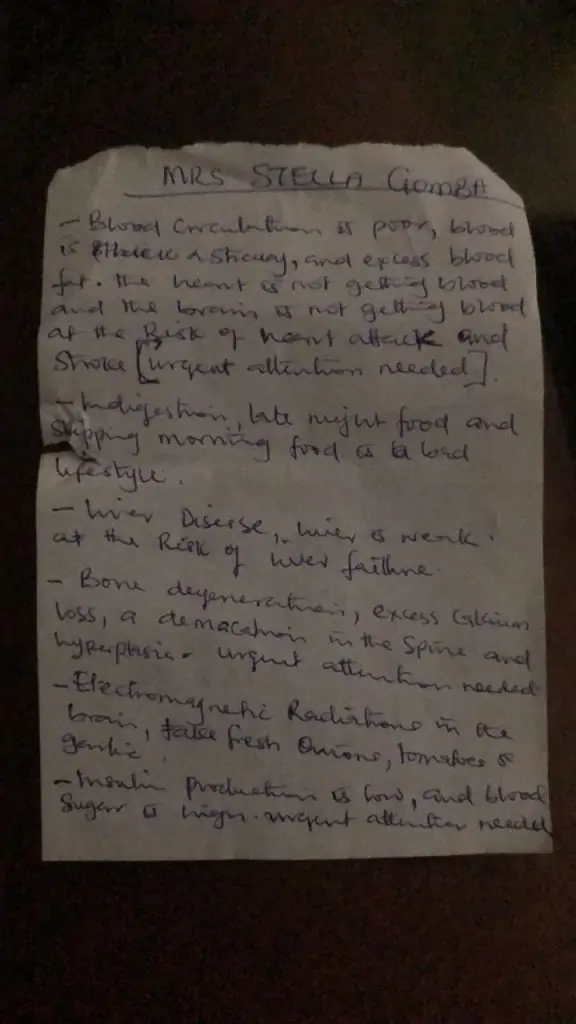 MRS STELLA GOMBA
- Blood Circulation is poor, blood
is thick & sticky, and excess blood
fat. the heart is not getting blood
and the brain is not getting blood
at the Risk of heart attack and
Stroke [urgent attention needed].
- Indigestion, late night food and
skipping morning food is a bad
lifestyle.
- Liver Disease, liver is weak.
at the Risk of liver failure.
- Bone degeneration, excess Calcium
loss, a demacation in the Spine and
hyperplasia. urgent attention needed
- Electromagnetic Radiations in the
brain, take fresh Onions, tomatoes &
garlic.
- Insulin production is low, and blood
Sugar is high. urgent attention needed